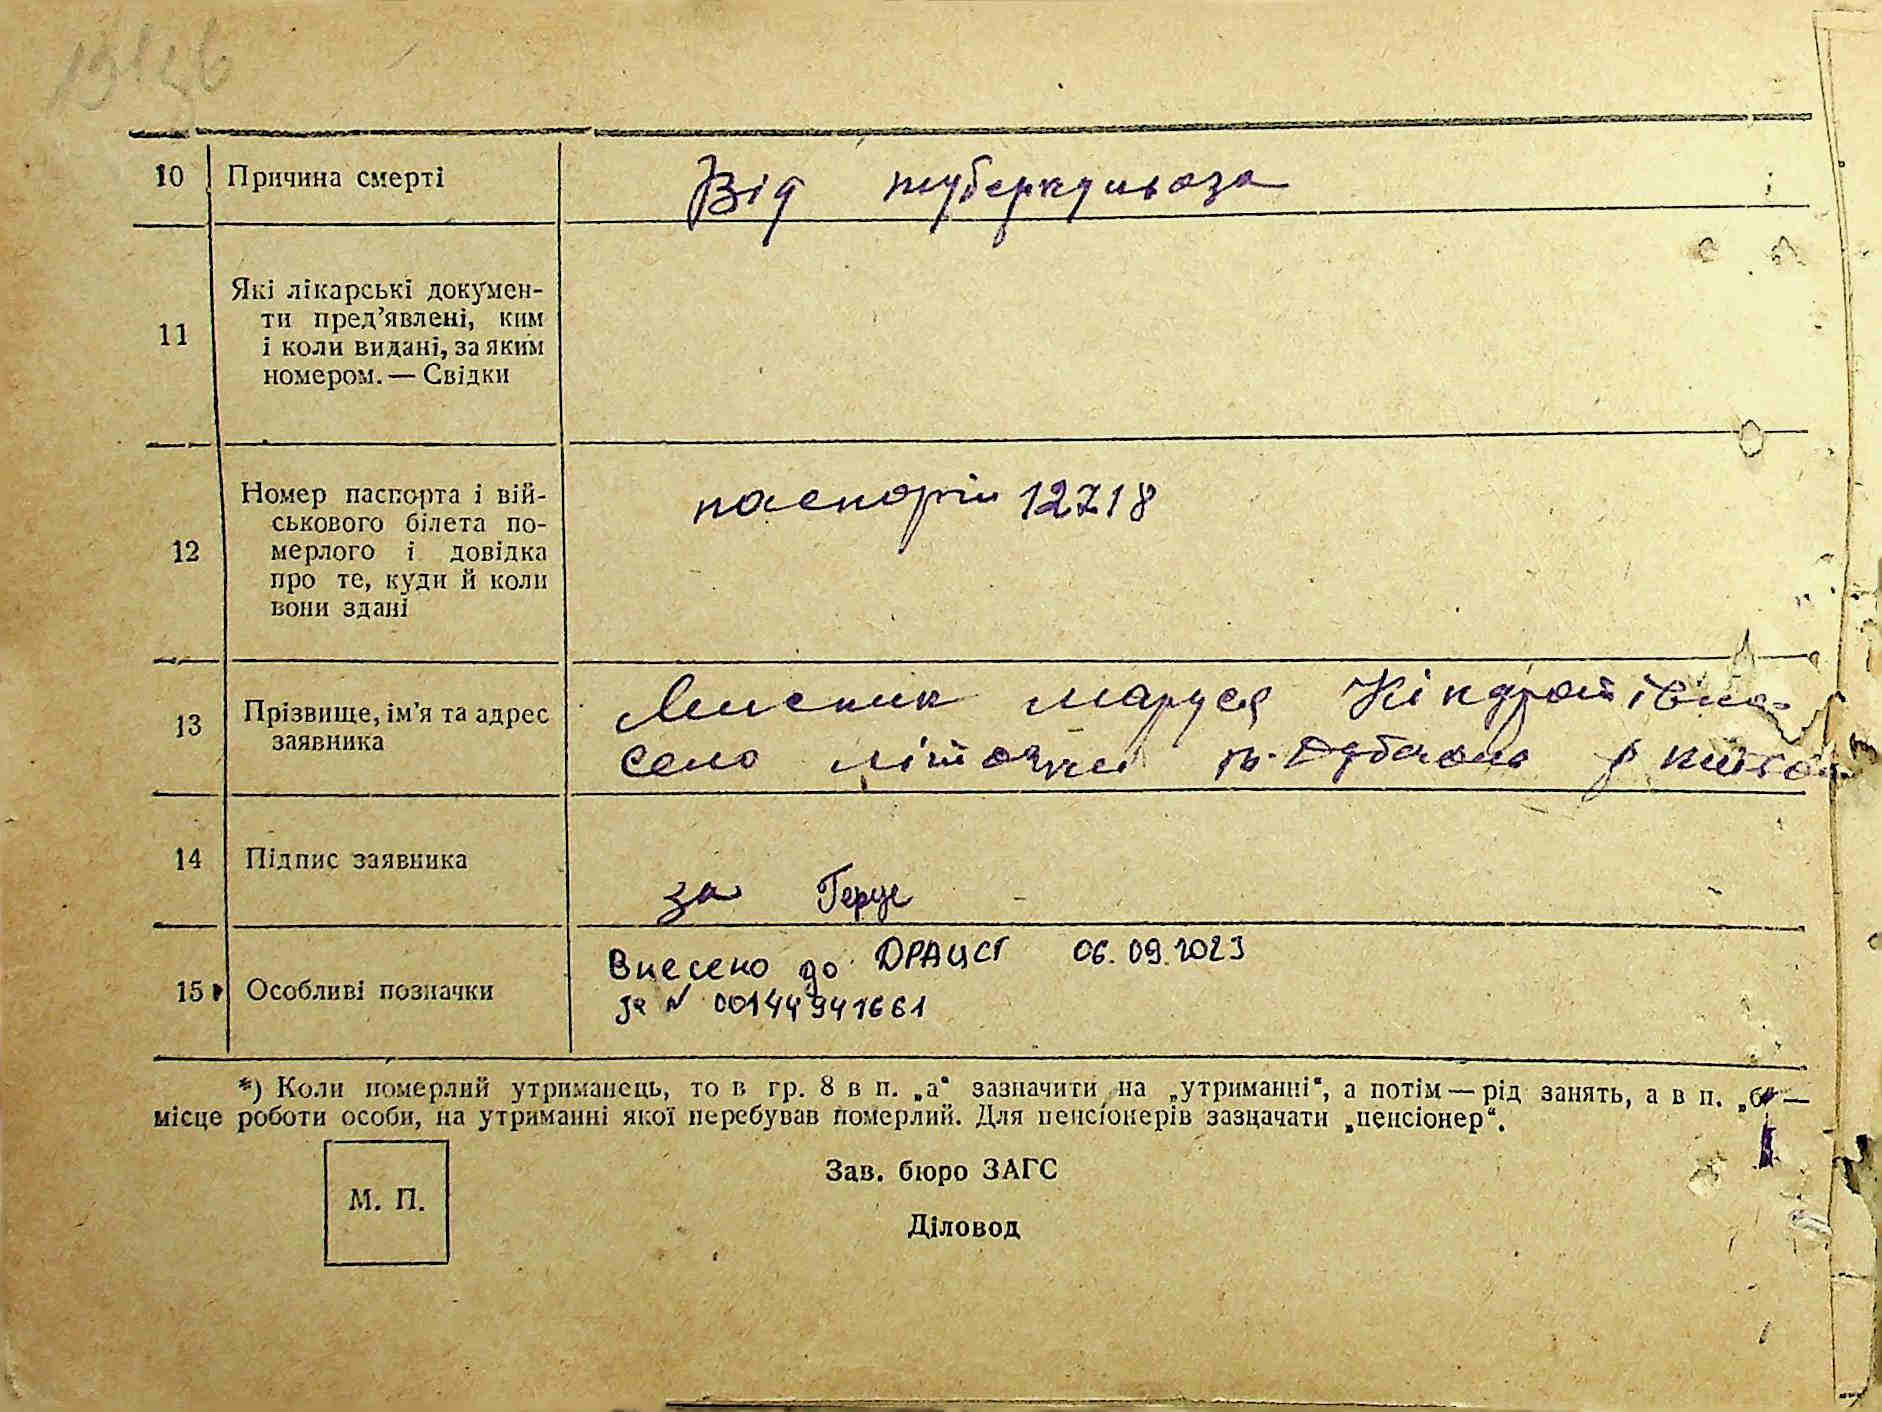 10 Причина смерті Від туберкульоза
Які лікарські докумен-
ти пред’явлені, ким
11 і коли видані, за яким
номером. — Свідки
Номер паспорта і вій-
ськового білета по-
12 мерлого і довідка
про те, куди й коли
вони здані
паспорт 12718
13 Прізвище, ім’я та адрес
заявника
Маруся Кіндратівна
село
14 Підпис заявника
за
15 Особливі позначки
Внесено до ДРАЦСГ 06.09.2023
за № 00144941661
*) Коли померлий утриманець, то в гр. 8 в п. „а“ зазначити на „утриманні“, а потім — рід занять, а в п. „б“ —
місце роботи особи, на утриманні якої перебував померлий. Для пенсіонерів зазначати „пенсіонер“.
М. П.
Зав. бюро ЗАГС
Діловод